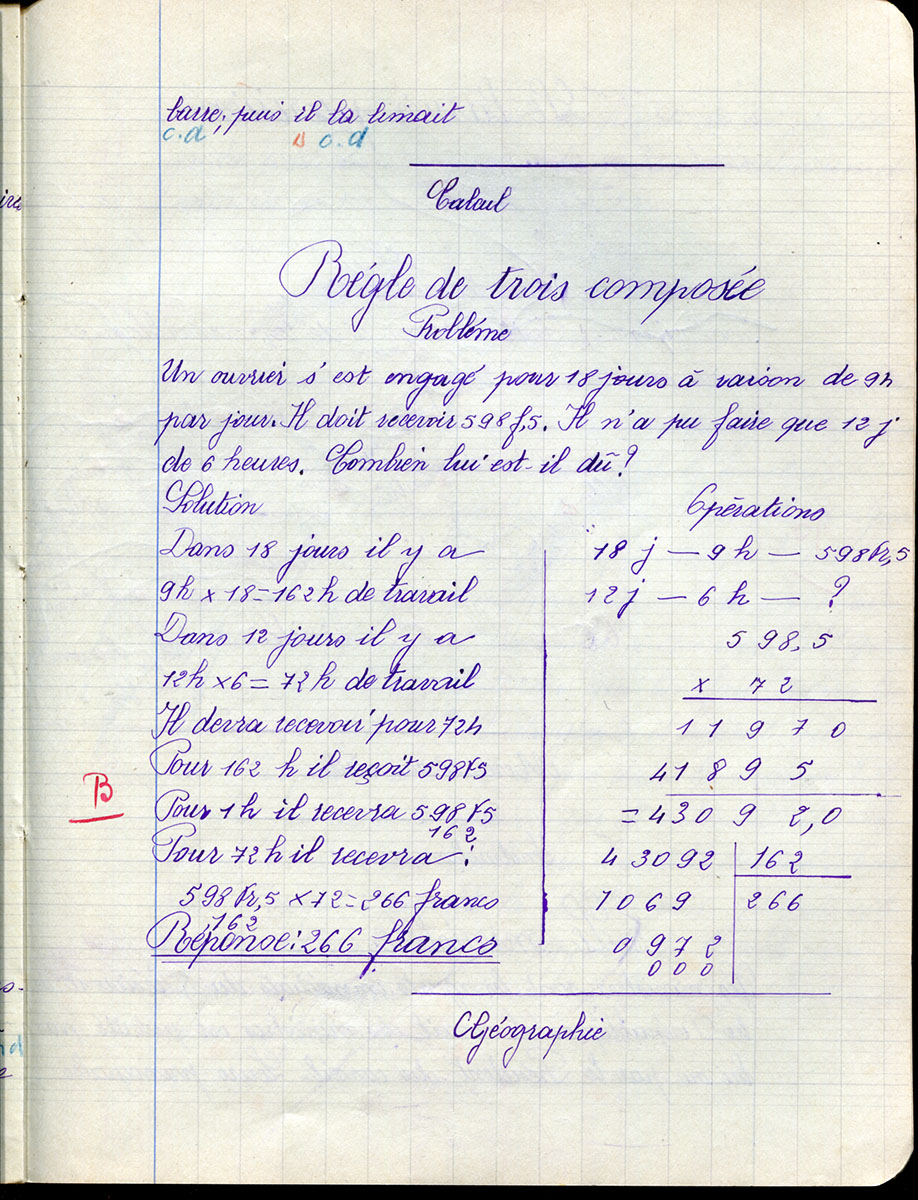 barre; puis il la limait
c.d c.d
Calcul
Régle de trois composée
Probléme
Un ouvrier s'est engagé pour 18 jours à raison de 9h
par jour. Il doit recevoir 598 f,5. Il n'a pu faire que 12 j
de 6 heures. Combien lui est-il dû?
Solution
Dans 18 jours il y a
9h x 18 = 162h de travail
Dans 12 jours il y a
12h x 6 = 72h de travail
Il devra recevoir pour 72h
Pour 162 h il reçoit 598f5
B
Pour 1h il recevra 598f5
162
Pour 72h il recevra :
598fr,5 x 72 = 266 francs
162
Réponse: 266 francs
Opérations
18 j — 9 h — 598fr,5
12 j — 6 h — ?
598,5
x 72
11970
41895
= 43092,0
43092 162
1069 266
0972
000
Géographie